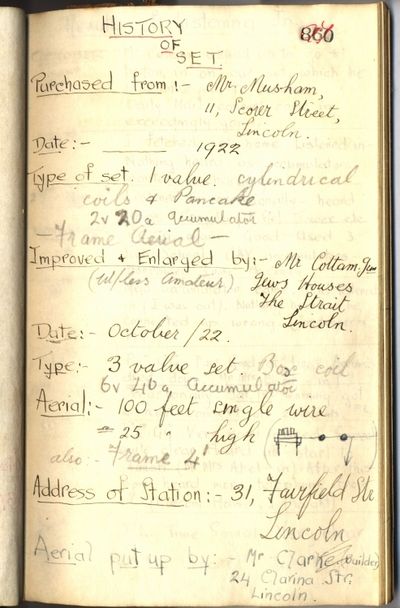 HISTORY
OF
SET.
860
Purchased from :- Mr Musham,
11, Scorer Street,
Lincoln.
Date:- 1922
Type of set. 1 value. cylindrical
coils & Pancake
2v 20a accumulator
- Frame Aerial -
Improved & Enlarged by:- Mr Cottam. Jun
(W/less Amateur), Jews Houses
The Strait
Lincoln.
Date:- October /22.
Type:- 3 value set. Box coil
6v 40a Accumulator
Aerial:- 100 feet single wire
= 25 " high
also :- Frame 4'
Address of Station:- 31, Fairfield Str
Lincoln
Aerial put up by:- Mr Clarke (Builder)
24 Clarina Str.
Lincoln.